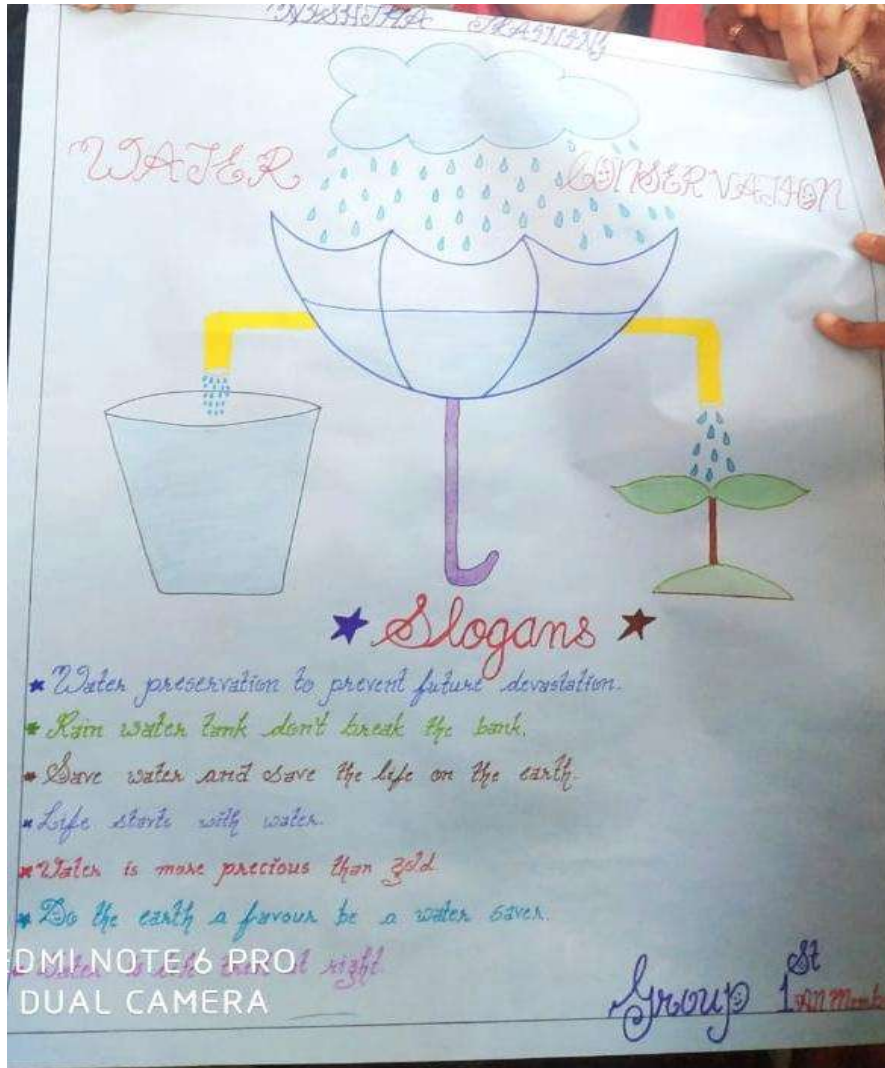 NISHTHA TRAINING
WATER CONSERVATION
Slogans
Water preservation to prevent future devastation.
Rain water tank don't break the bank.
Save water and save the life on the earth.
Life starts with water.
Water is more precious than gold
Do the earth a favour be a water saver.
water is right
Group 1st All
REDMI NOTE 6 PRO
DUAL CAMERA